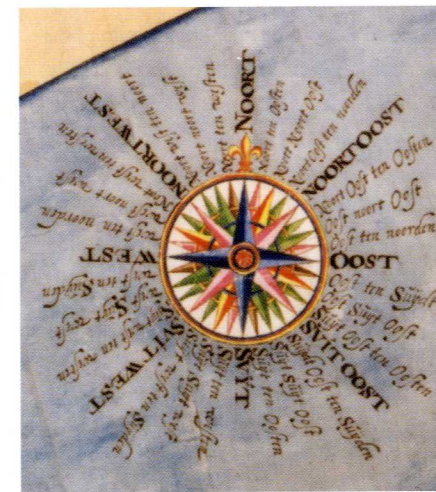 NOORT
Noort ten Ooſten
Noort Noort Ooſt
Noort Ooſt ten noorden
NOORTOOST
Noort Ooſt ten Ooſten
Ooſt noort Ooſt
Ooſt ten noerden
OOST
Ooſt ten Süijdē
Ooſt Suijt Ooſt
Suijt Ooſt ten Ooſten
SVIT OOST
Suijd Ooſt ten Süijden
Suijt Süijt Ooſt
Suijt ten Ooſten
SVIT
Suijt ten weſten
Suijt Suijt weſt
Suijt weſt ten Suijden
SVIT WEST
Suijt weſt ten weſten
weſt Suijt weſt
weſt ten Suijden
WEST
weſt ten noerden
weſt noort weſt
Noort weſt ten weſten
NOORTWEST
Noort weſt ten noort
Noort noort weſt
Noort ten weſten